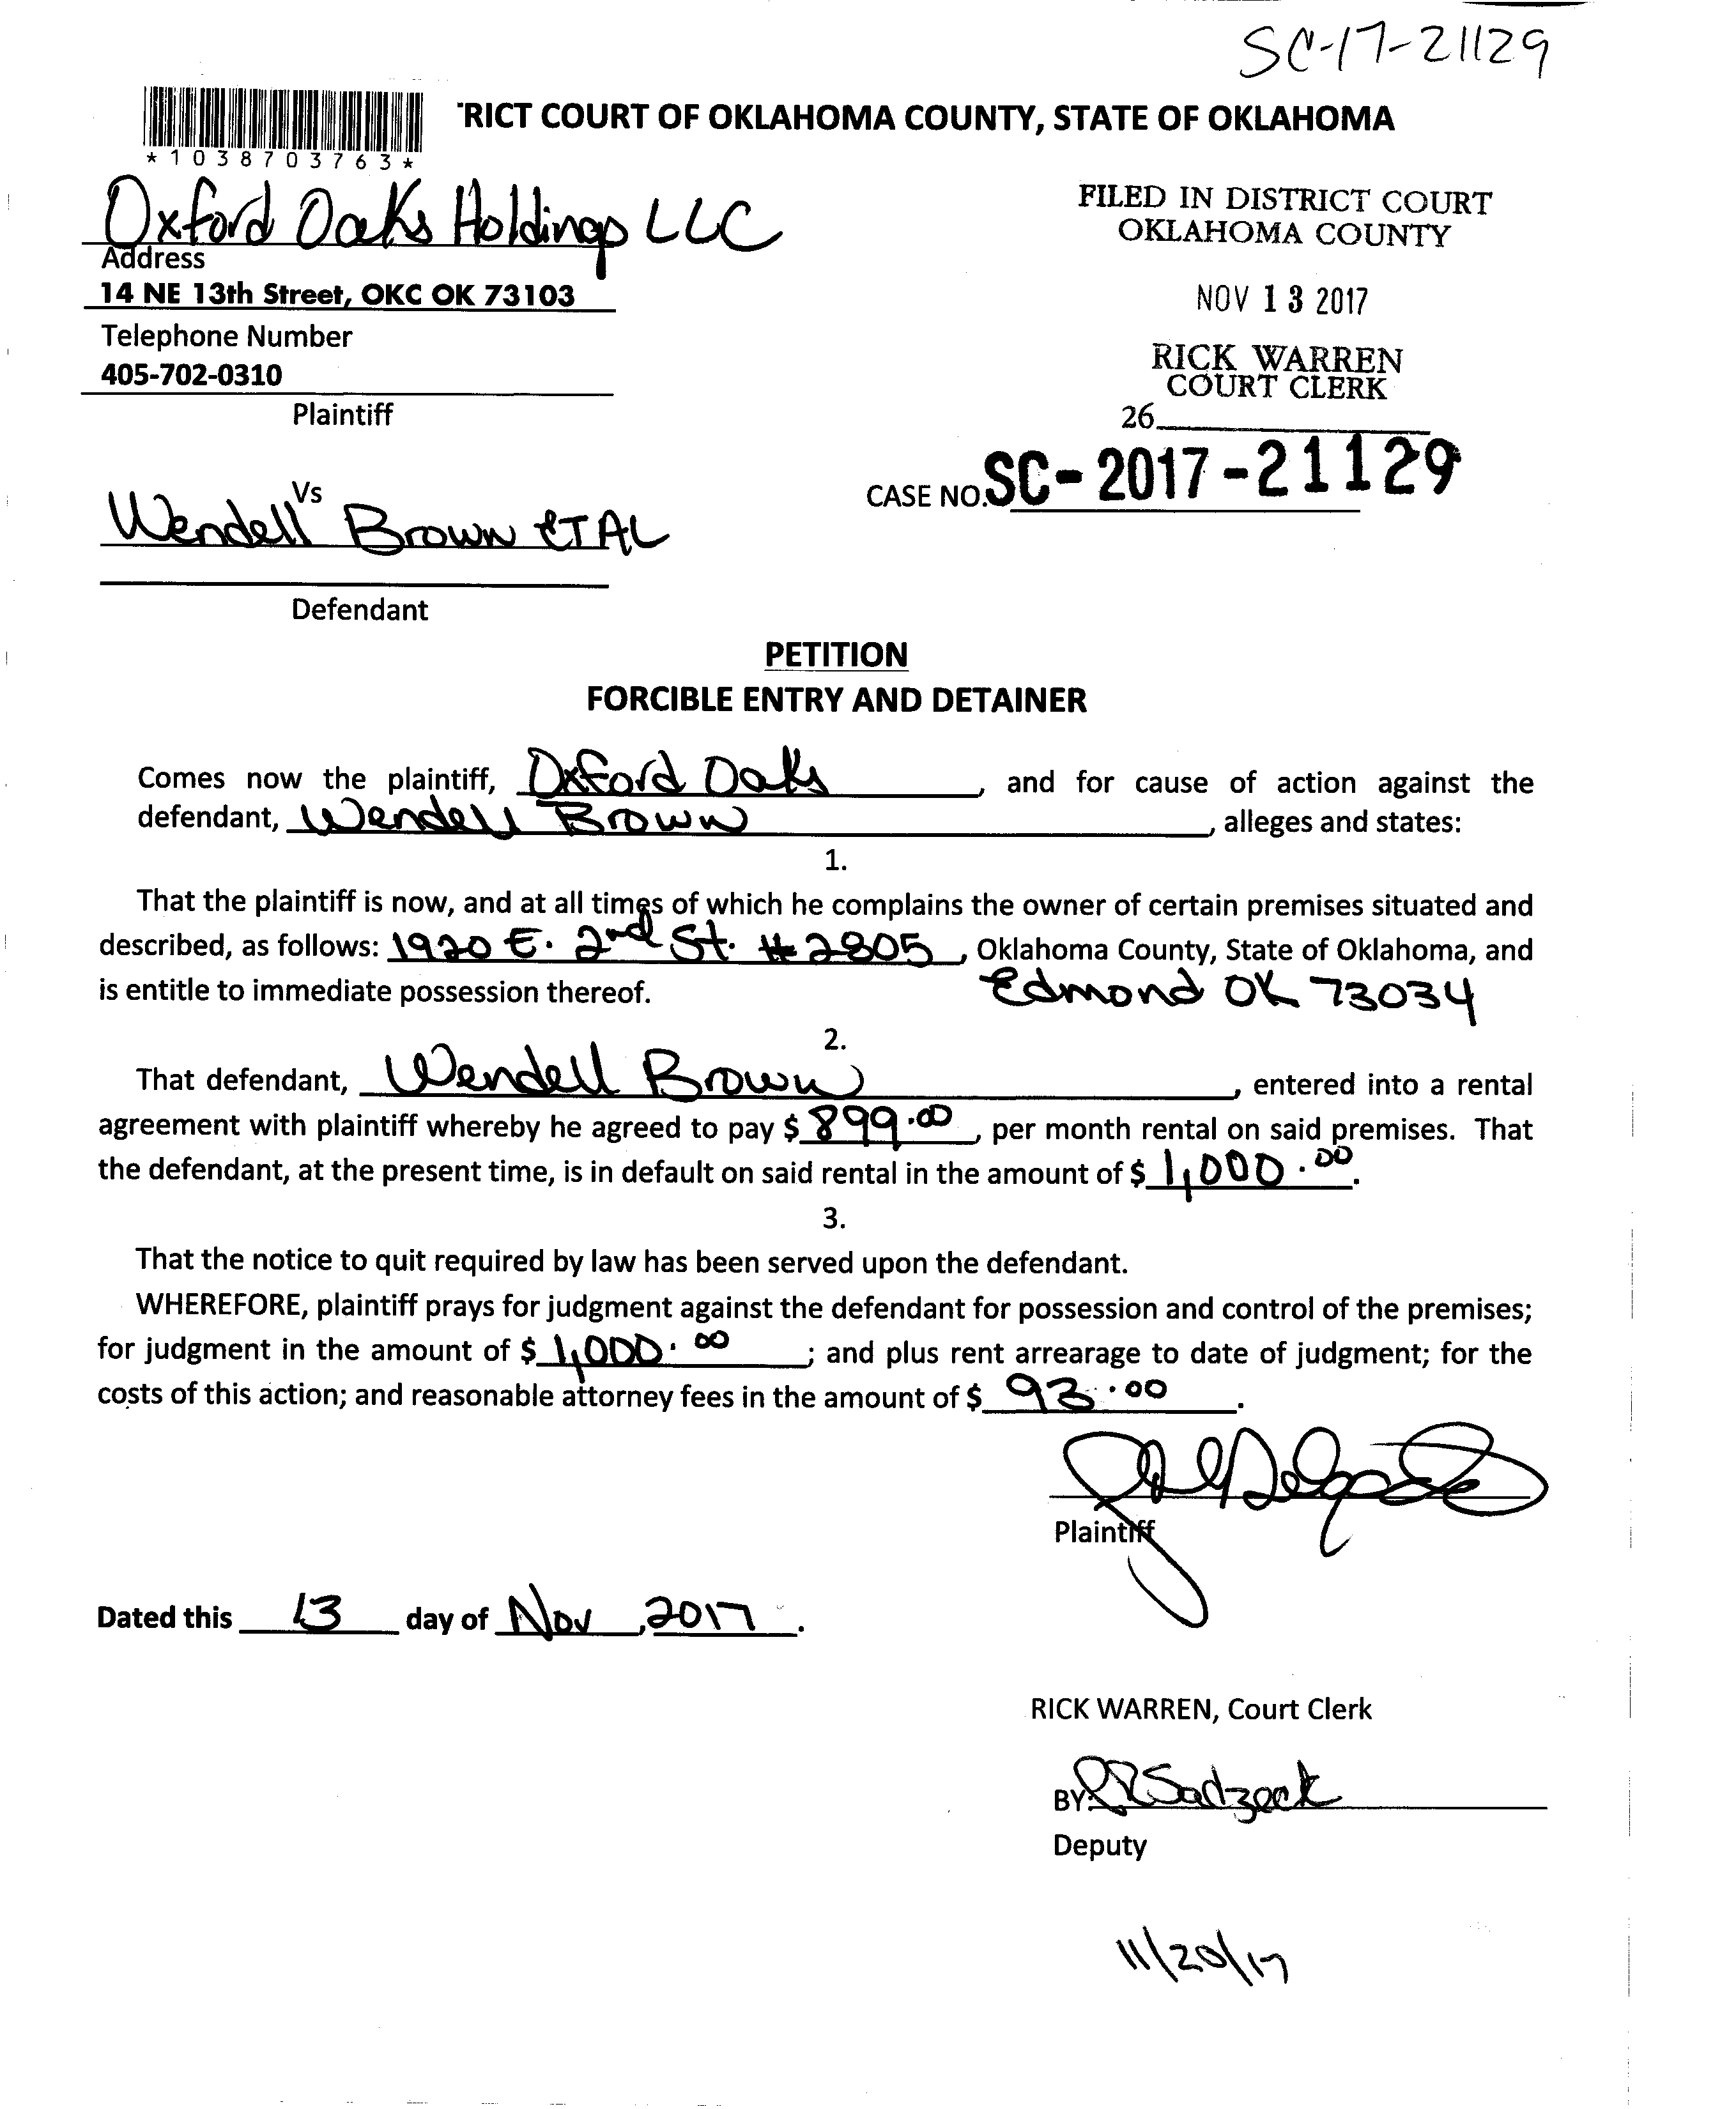 SC-17-21129
RICT COURT OF OKLAHOMA COUNTY, STATE OF OKLAHOMA
*1038703763*
Oxford Oaks Holdings LLC
Address
14 NE 13th Street, OKC OK 73103
Telephone Number
405-702-0310
Plaintiff
FILED IN DISTRICT COURT
OKLAHOMA COUNTY
NOV 13 2017
RICK WARREN
COURT CLERK
26
CASE NO. SC-2017-21129
Vs
Wendell Brown ETAL
Defendant
PETITION
FORCIBLE ENTRY AND DETAINER
Comes now the plaintiff, Oxford Oaks, and for cause of action against the
defendant, Wendell Brown, alleges and states:
1.
That the plaintiff is now, and at all times of which he complains the owner of certain premises situated and
described, as follows: 1920 E. 2nd St. #2805, Oklahoma County, State of Oklahoma, and
is entitle to immediate possession thereof. Edmond OK 73034
2.
That defendant, Wendell Brown, entered into a rental
agreement with plaintiff whereby he agreed to pay $ 899.00, per month rental on said premises. That
the defendant, at the present time, is in default on said rental in the amount of $ 1,000.00.
3.
That the notice to quit required by law has been served upon the defendant.
WHEREFORE, plaintiff prays for judgment against the defendant for possession and control of the premises;
for judgment in the amount of $ 1,000.00; and plus rent arrearage to date of judgment; for the
costs of this action; and reasonable attorney fees in the amount of $ 93.00.
Plaintiff
Dated this 13 day of Nov, 2017.
RICK WARREN, Court Clerk
BY:
Deputy
11/20/17